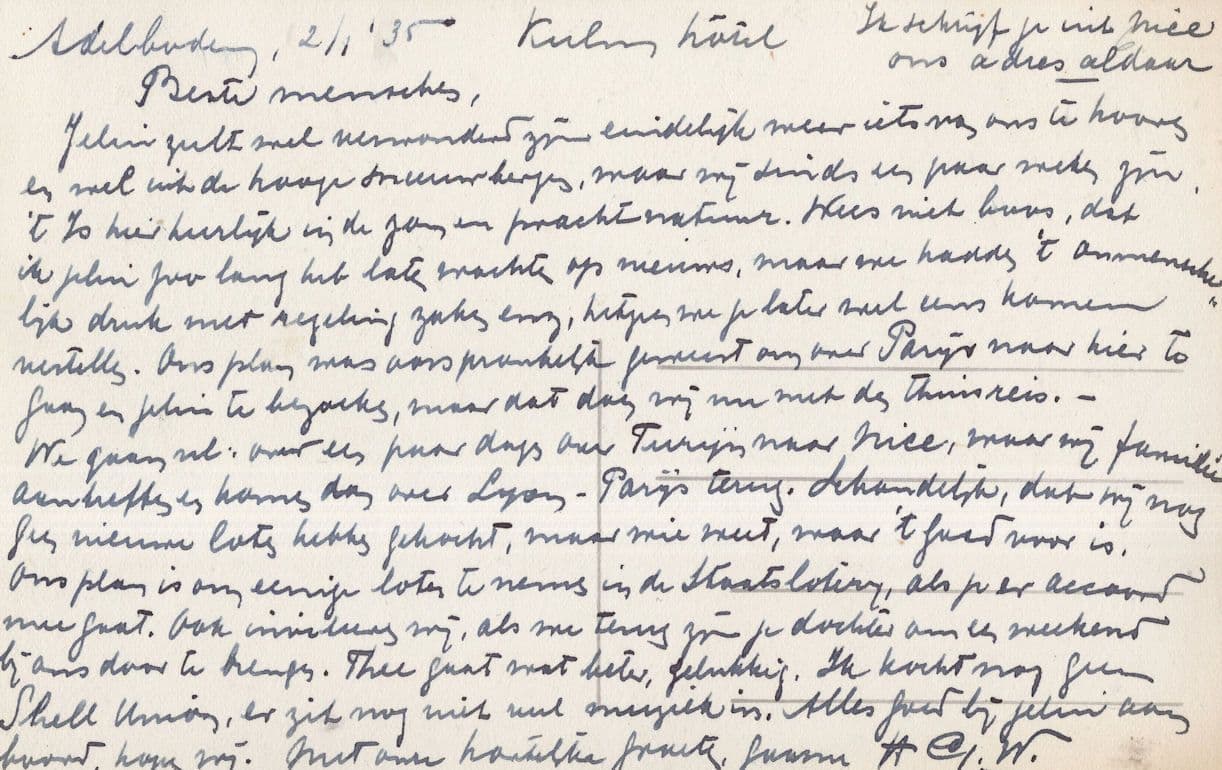 Adelboden, 2/1 '35 Kulm hôtel Ik schrijf je uit Nice
ons adres aldaar
Beste menschen,
Jelui zult wel verwonderd zijn eindelijk weer iets van ons te hooren
en wel uit de hooge sneeuwbergen, waar wij sinds een paar weken zijn.
't Is hier heerlijk in de zon en pracht natuur. Wees niet boos, dat
ik jelui zoo lang heb laten wachten op nieuws, maar we hadden 't onmensche
lijk druk met regeling zaken enz, hetgeen we je later wel eens komen
vertellen. Ons plan was oorspronkelijk geweest om over Parijs naar hier te
gaan en jelui te bezoeken, maar dat doen wij nu met de thuisreis. –
We gaan nl. over een paar dagen over Turijn naar Nice, waar wij familie
aantreffen en komen dan over Lyon – Parijs terug. Schandelijk, dat wij nog
geen nieuwe loten hebben gekocht, maar wie weet, waar 't goed voor is.
Ons plan is om eenige loten te nemen in de Staatsloterij, als je er accoord
mee gaat. Ook inviteeren wij, als we terug zijn je dochter om een weekend
bij ons door te brengen. Thee gaat wat beter, gelukkig. Ik kocht nog geen
Shell Union, er zit nog niet veel muziek in. Alles goed bij jelui aan
boord, hopen wij. Met onze hartelijke groeten, gaarne H